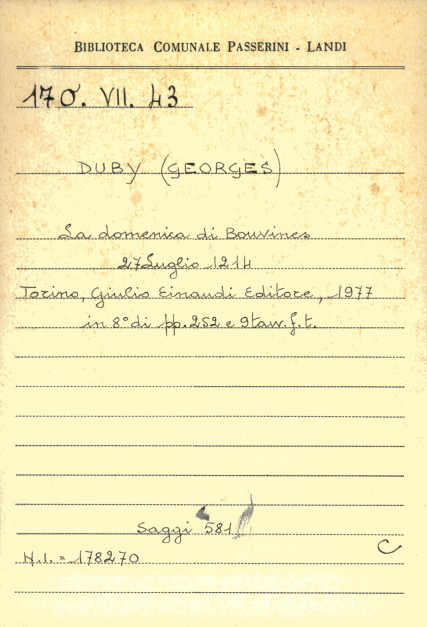 BIBLIOTECA COMUNALE PASSERINI - LANDI
170. VII. 43
DUBY (GEORGES)
La domenica di Bouvines
27 Luglio 1214
Torino, Giulio Einaudi Editore, 1977
in 8° di pp. 252 e 9 tav. f. t.
Saggi 581
N.I. = 178270
C